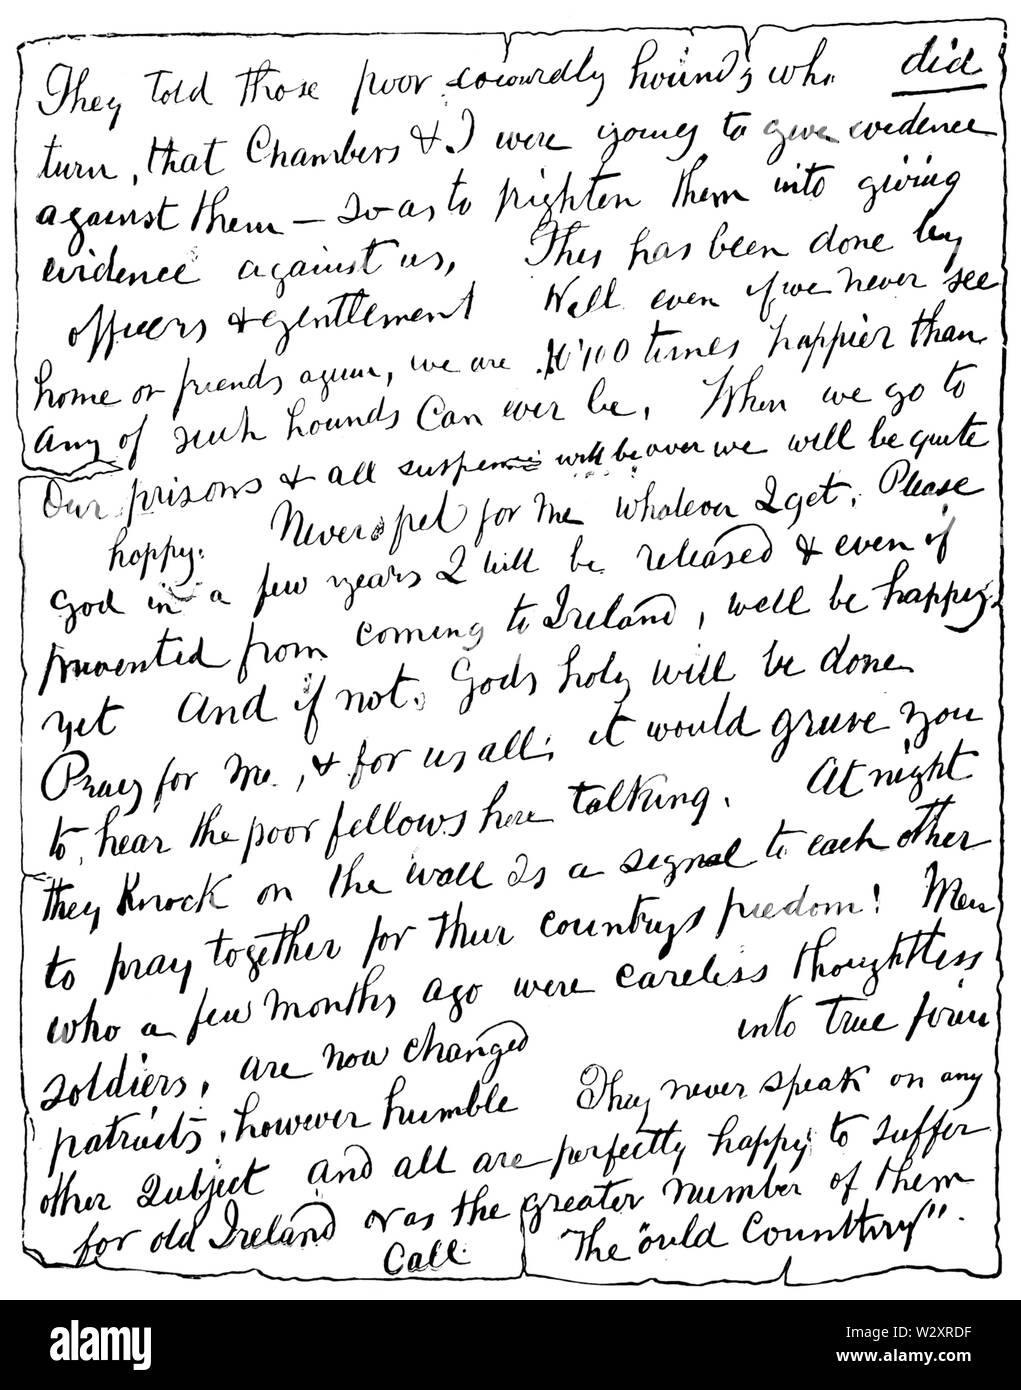 They told those poor cowardly hounds who did
turn, that Chambers & I were going to give evidence
against them — so as to frighten them into giving
evidence against us, This has been done by
officers & gentlement Well even if we never see
home or friends again, we are 100 times happier than
any of such hounds Can ever be. When we go to
Our prisons & all suspense will be over we will be quite
happy. Never fret for me whatever I get. Please
God in a few years I will be released & even if
prevented from coming to Ireland, well be happy
yet And if not. Gods holy will be done
Pray for me, & for us all. it would grieve you
to hear the poor fellows here talking. At night
they Knock on the wall as a signal to each other
to pray together for their countrys freedom! Men
who a few months ago were careless thoughtless
soldiers, are now changed into true firm
patriots, however humble They never speak on any
other subject And all are perfectly happy to suffer
for old Ireland or as the greater number of them
Call The "ould Counttry".
alamy
Image ID: W2XRDF
www.alamy.com